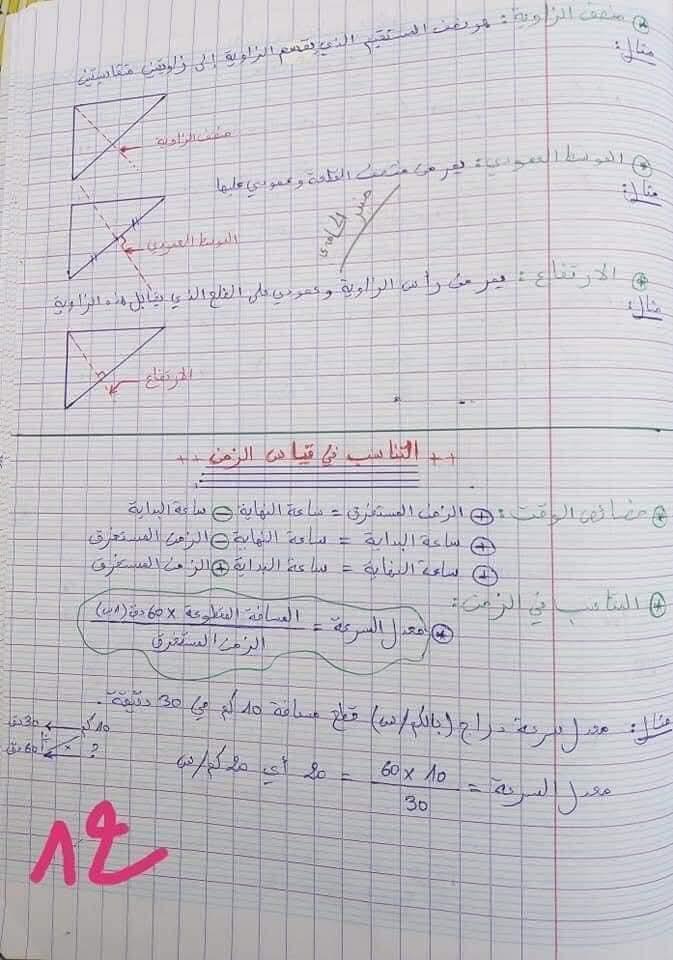 منصف الزاوية: هو نصف المستقيم الذي يقسم الزاوية إلى زاويتين متقايستين
مثال:
منصف الزاوية
الموسط العمودي: يمر من منتصف القطعة وعمودي عليها
مثال:
الموسط العمودي
الارتفاع: يمر من رأس الزاوية وعمودي على الضلع الذي يقابل هذه الزاوية
مثال:
الارتفاع
++ التناسب في قياس الزمن ++
خصائص الوقت: + الزمن المستغرق = ساعة النهاية - ساعة البداية
+ ساعة البداية = ساعة النهاية - الزمن المستغرق
+ ساعة النهاية = ساعة البداية + الزمن المستغرق
التناسب في الزمن:
معدل السرعة = المسافة المقطوعة × 60 دق (1س)
الزمن المستغرق
مثال: معدل سرعة دراج (بالكم/س) قطع مسافة 10 كم في 30 دقيقة.
10 كم ← 30 دق
? ← 60 دق
معدل السرعة = 60 × 10 / 30 = 20 أي 20 كم/س